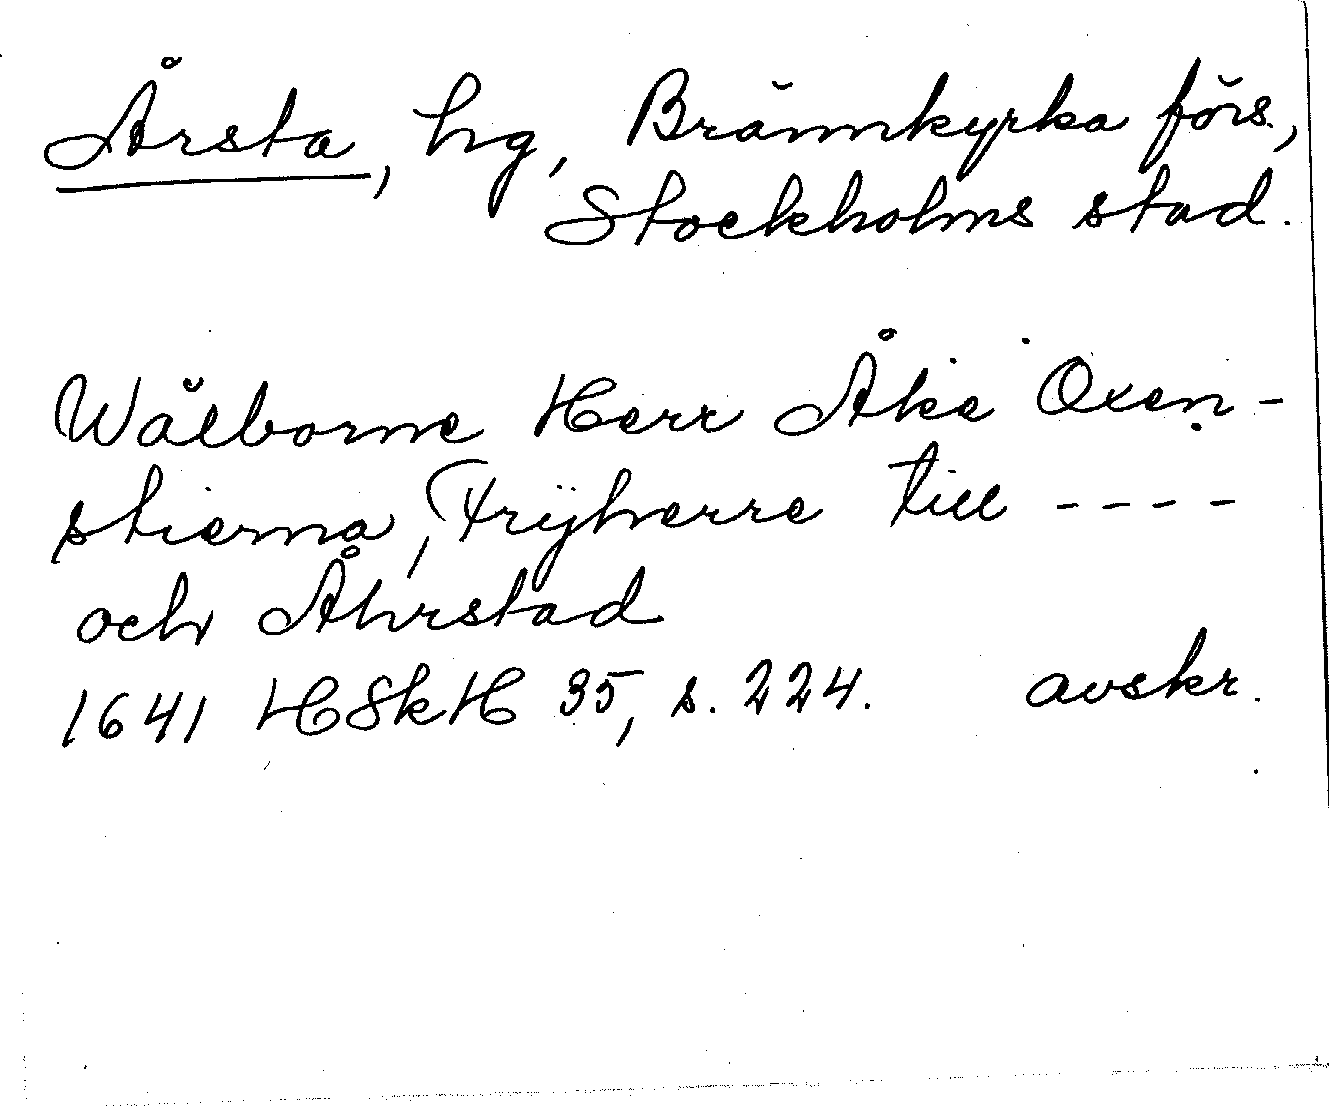 Årsta, hg, Brännkyrka förs.,
Stockholms stad.
Wälborne Herr Åke Oxen-
stierna, Frijherre till ----
och Åhrstad
1641 HSkH 35, s. 224. avskr.